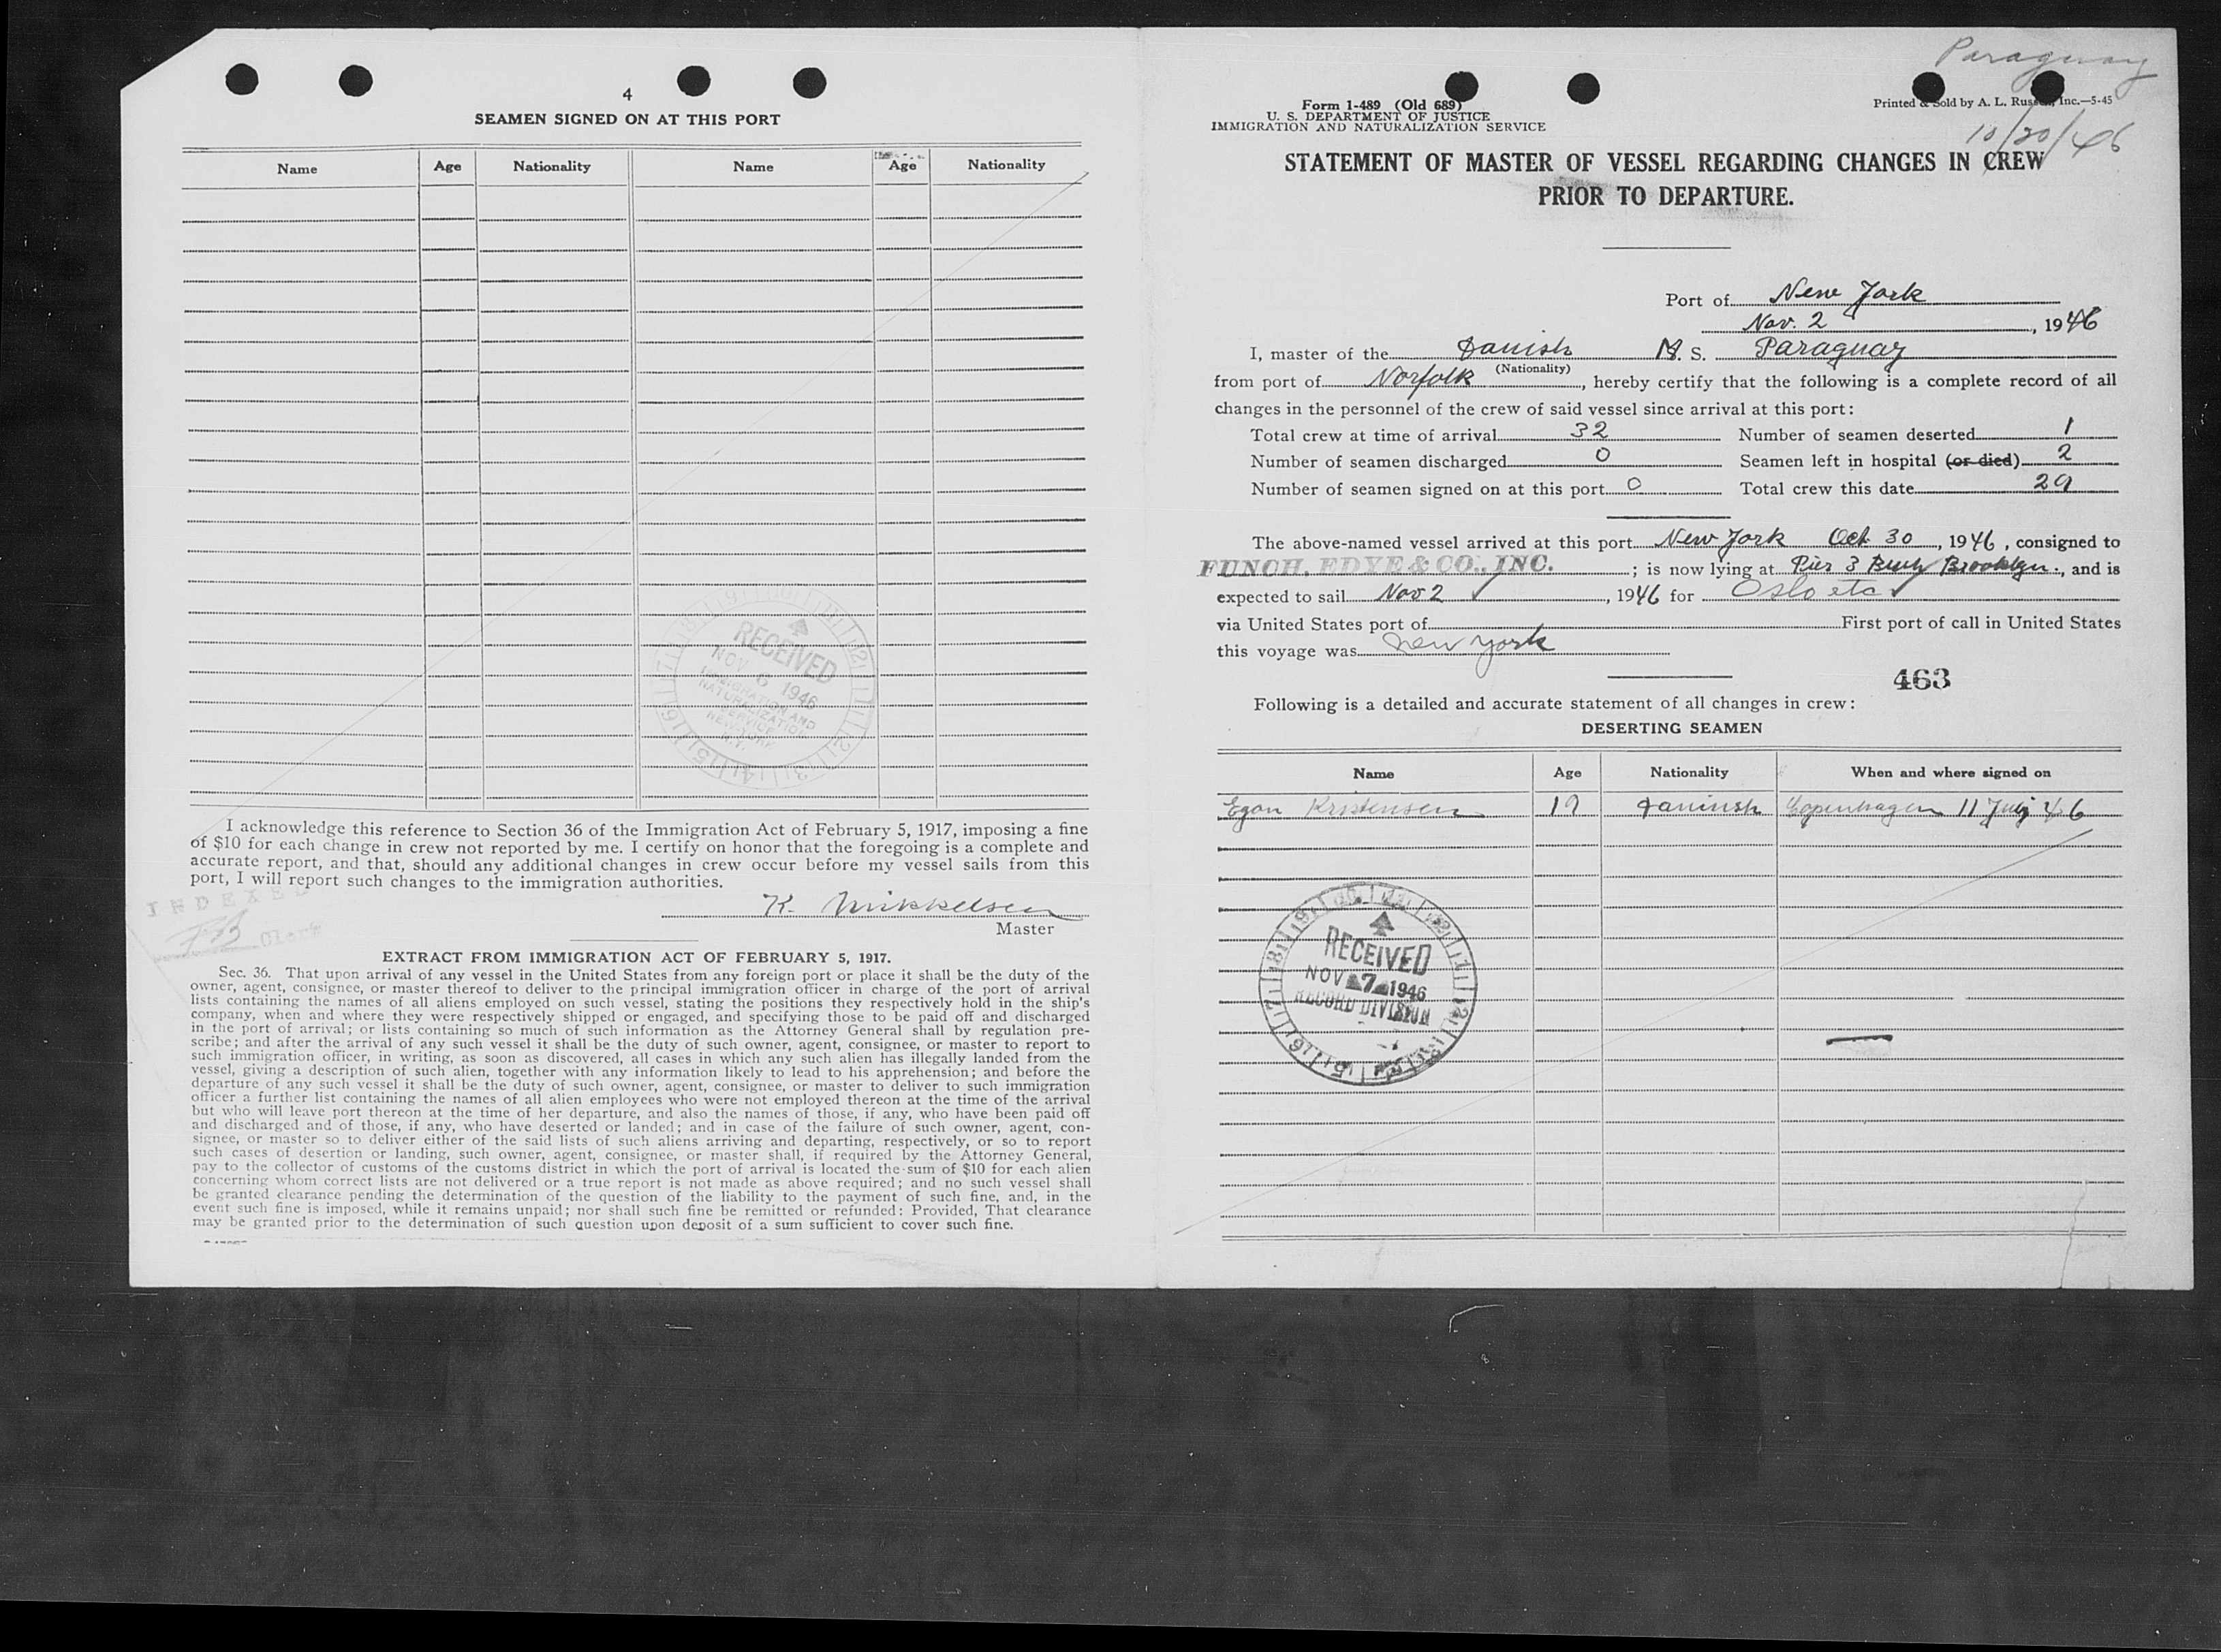 4
SEAMEN SIGNED ON AT THIS PORT
Name Age Nationality Name Age Nationality
RECEIVED
NOV 6 1946
IMMIGRATION AND
NATURALIZATION
SERVICE
NEW YORK
N.Y.
I acknowledge this reference to Section 36 of the Immigration Act of February 5, 1917, imposing a fine
of $10 for each change in crew not reported by me. I certify on honor that the foregoing is a complete and
accurate report, and that, should any additional changes in crew occur before my vessel sails from this
port, I will report such changes to the immigration authorities.
INDEXED
Clerk
K. Mikkelsen
Master
EXTRACT FROM IMMIGRATION ACT OF FEBRUARY 5, 1917.
Sec. 36. That upon arrival of any vessel in the United States from any foreign port or place it shall be the duty of the
owner, agent, consignee, or master thereof to deliver to the principal immigration officer in charge of the port of arrival
lists containing the names of all aliens employed on such vessel, stating the positions they respectively hold in the ship's
company, when and where they were respectively shipped or engaged, and specifying those to be paid off and discharged
in the port of arrival; or lists containing so much of such information as the Attorney General shall by regulation pre-
scribe; and after the arrival of any such vessel it shall be the duty of such owner, agent, consignee, or master to report to
such immigration officer, in writing, as soon as discovered, all cases in which any such alien has illegally landed from the
vessel, giving a description of such alien, together with any information likely to lead to his apprehension; and before the
departure of any such vessel it shall be the duty of such owner, agent, consignee, or master to deliver to such immigration
officer a further list containing the names of all alien employees who were not employed thereon at the time of the arrival
but who will leave port thereon at the time of her departure, and also the names of those, if any, who have been paid off
and discharged and of those, if any, who have deserted or landed; and in case of the failure of such owner, agent, con-
signee, or master so to deliver either of the said lists of such aliens arriving and departing, respectively, or so to report
such cases of desertion or landing, such owner, agent, consignee, or master shall, if required by the Attorney General,
pay to the collector of customs of the customs district in which the port of arrival is located the sum of $10 for each alien
concerning whom correct lists are not delivered or a true report is not made as above required; and no such vessel shall
be granted clearance pending the determination of the question of the liability to the payment of such fine, and, in the
event such fine is imposed, while it remains unpaid; nor shall such fine be remitted or refunded: Provided, That clearance
may be granted prior to the determination of such question upon deposit of a sum sufficient to cover such fine.
Paraguay
Form 1-489 (Old 689)
Printed & Sold by A. L. Russell, Inc.—5-45
U. S. DEPARTMENT OF JUSTICE
IMMIGRATION AND NATURALIZATION SERVICE
10/30/46
STATEMENT OF MASTER OF VESSEL REGARDING CHANGES IN CREW
PRIOR TO DEPARTURE.
Port of New York
Nov. 2, 1946
I, master of the Danish M. S. Paraguay
(Nationality)
from port of Norfolk, hereby certify that the following is a complete record of all
changes in the personnel of the crew of said vessel since arrival at this port:
Total crew at time of arrival 32 Number of seamen deserted 1
Number of seamen discharged 0 Seamen left in hospital (or died) 2
Number of seamen signed on at this port 0 Total crew this date 29
The above-named vessel arrived at this port New York Oct 30, 1946, consigned to
FUNCH, EDYE & CO., INC.; is now lying at Pier 3 Brooklyn, and is
expected to sail Nov 2, 1946 for Oslo etc
via United States port of First port of call in United States
this voyage was new york
463
Following is a detailed and accurate statement of all changes in crew:
DESERTING SEAMEN
Name Age Nationality When and where signed on
Egon Kristensen 19 Daninsh Copenhagen 11 46
RECEIVED
NOV 7 1946
RECORD DIVISION